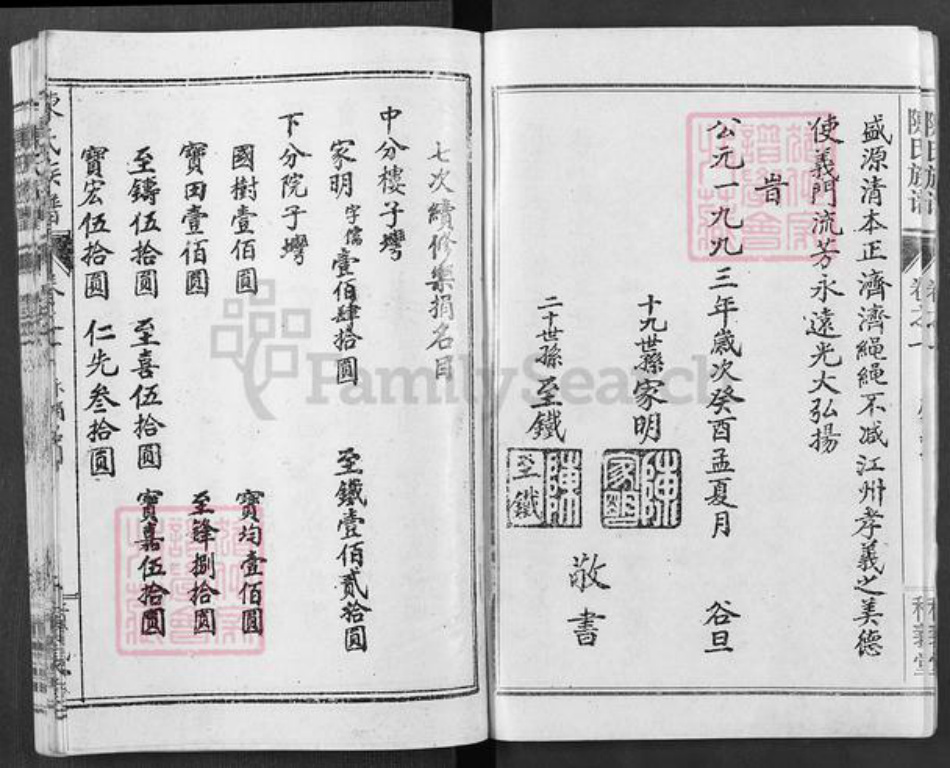 陳氏族譜
盛源清本正濟濟繩繩不減江州孝義之美德
使義門流芳永遠光大弘揚
旹
公元一九九三年歲次癸酉孟夏月 谷旦
十九世孫家明
陳家明
二十世孫至鐵
陳至鐵
敬書
七次續修樂捐名目
中分樓子塆
家明字儒壹佰肆拾圓 至鐵壹佰貳拾圓
下分院子塆
國樹壹佰圓 寶均壹佰圓
寶田壹佰圓 至鋒捌拾圓
至鑄伍拾圓 至喜伍拾圓 寶嘉伍拾圓
寶宏伍拾圓 仁先叁拾圓
FamilySearch